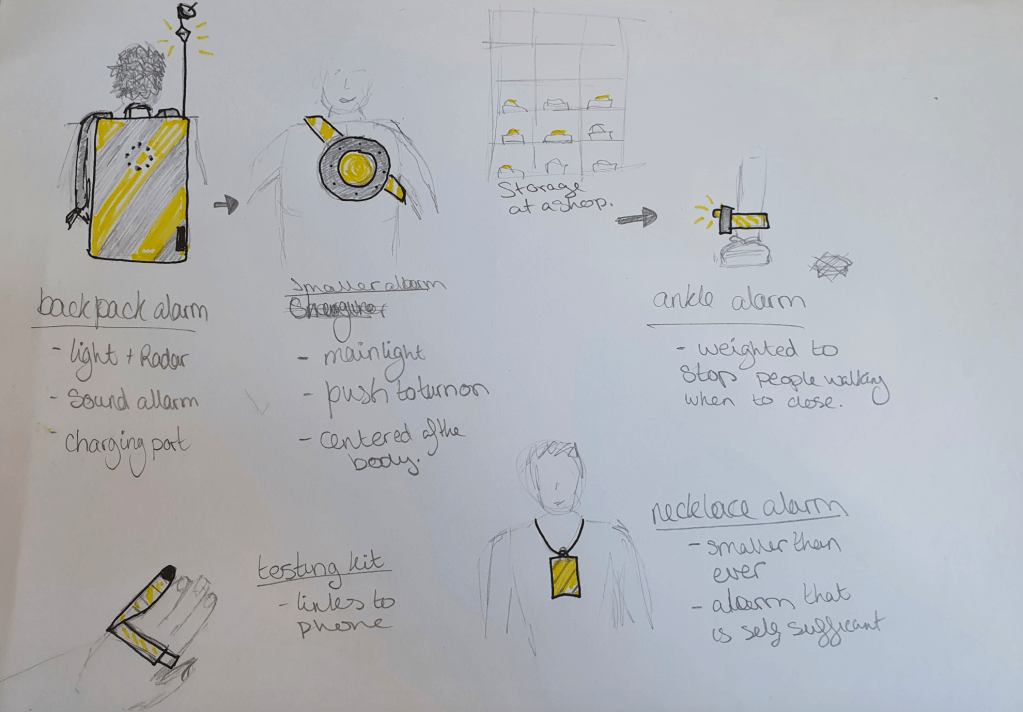 Storage
at a shop.
backpack alarm
- light + Radar
- Sound allarm
- Charging port
Smaller alarm
- main light
- push to turn on
- Centered of the
body.
ankle alarm
- weighted to
stop people walking
when to close.
testing kit
- links to
phone
necklace alarm
- smaller than
ever
- alarm that
is self sufficant